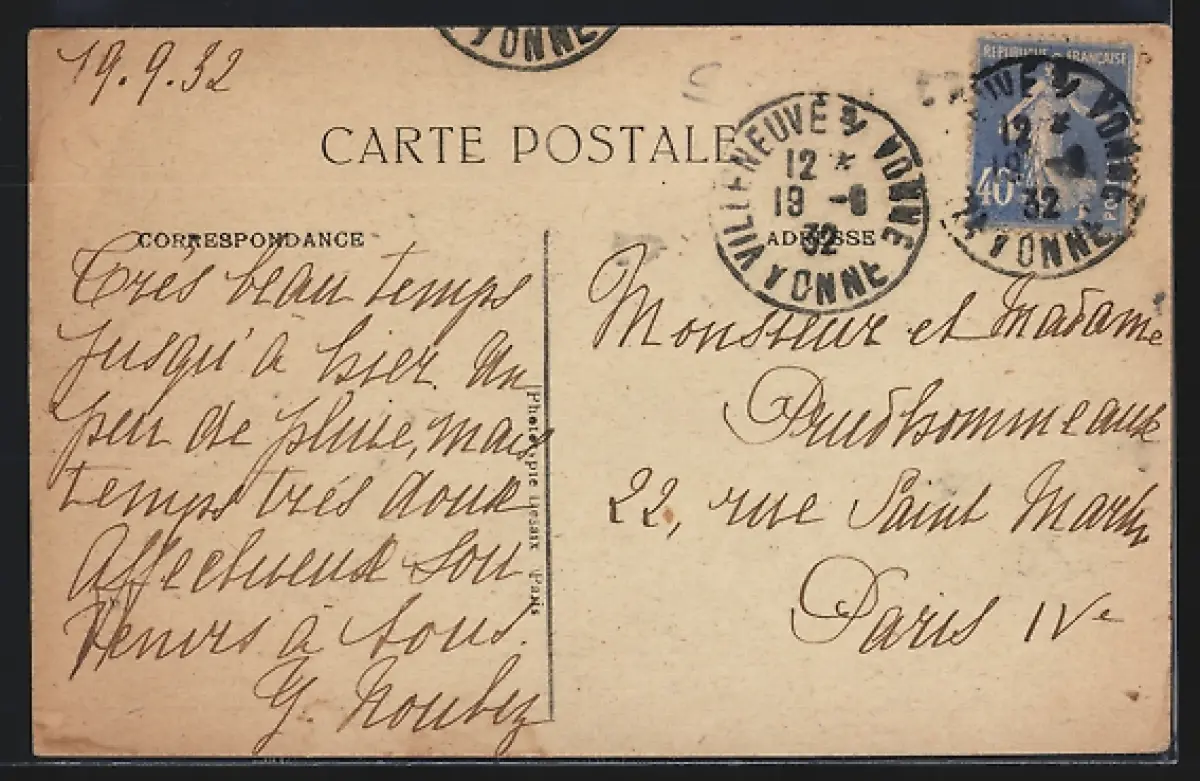 YONNE
19.9.32
CARTE POSTALE
VILLENEUVE S/ YONNE
12 *
19 -9
32
YONNE
REPUBLIQUE FRANÇAISE
40
POSTES
NEUVE S/ YONNE
12 *
19 -9
32
YONNE
CORRESPONDANCE
ADRESSE
Très beau temps
jusqu'à hier. Un
peu de pluie, mais
temps très doux
Affectueux sou
venirs à tous.
Monsieur et Madame
Prudhommeaux
22, rue Saint Martin
Paris IVe
Phototypie Desaix Paris